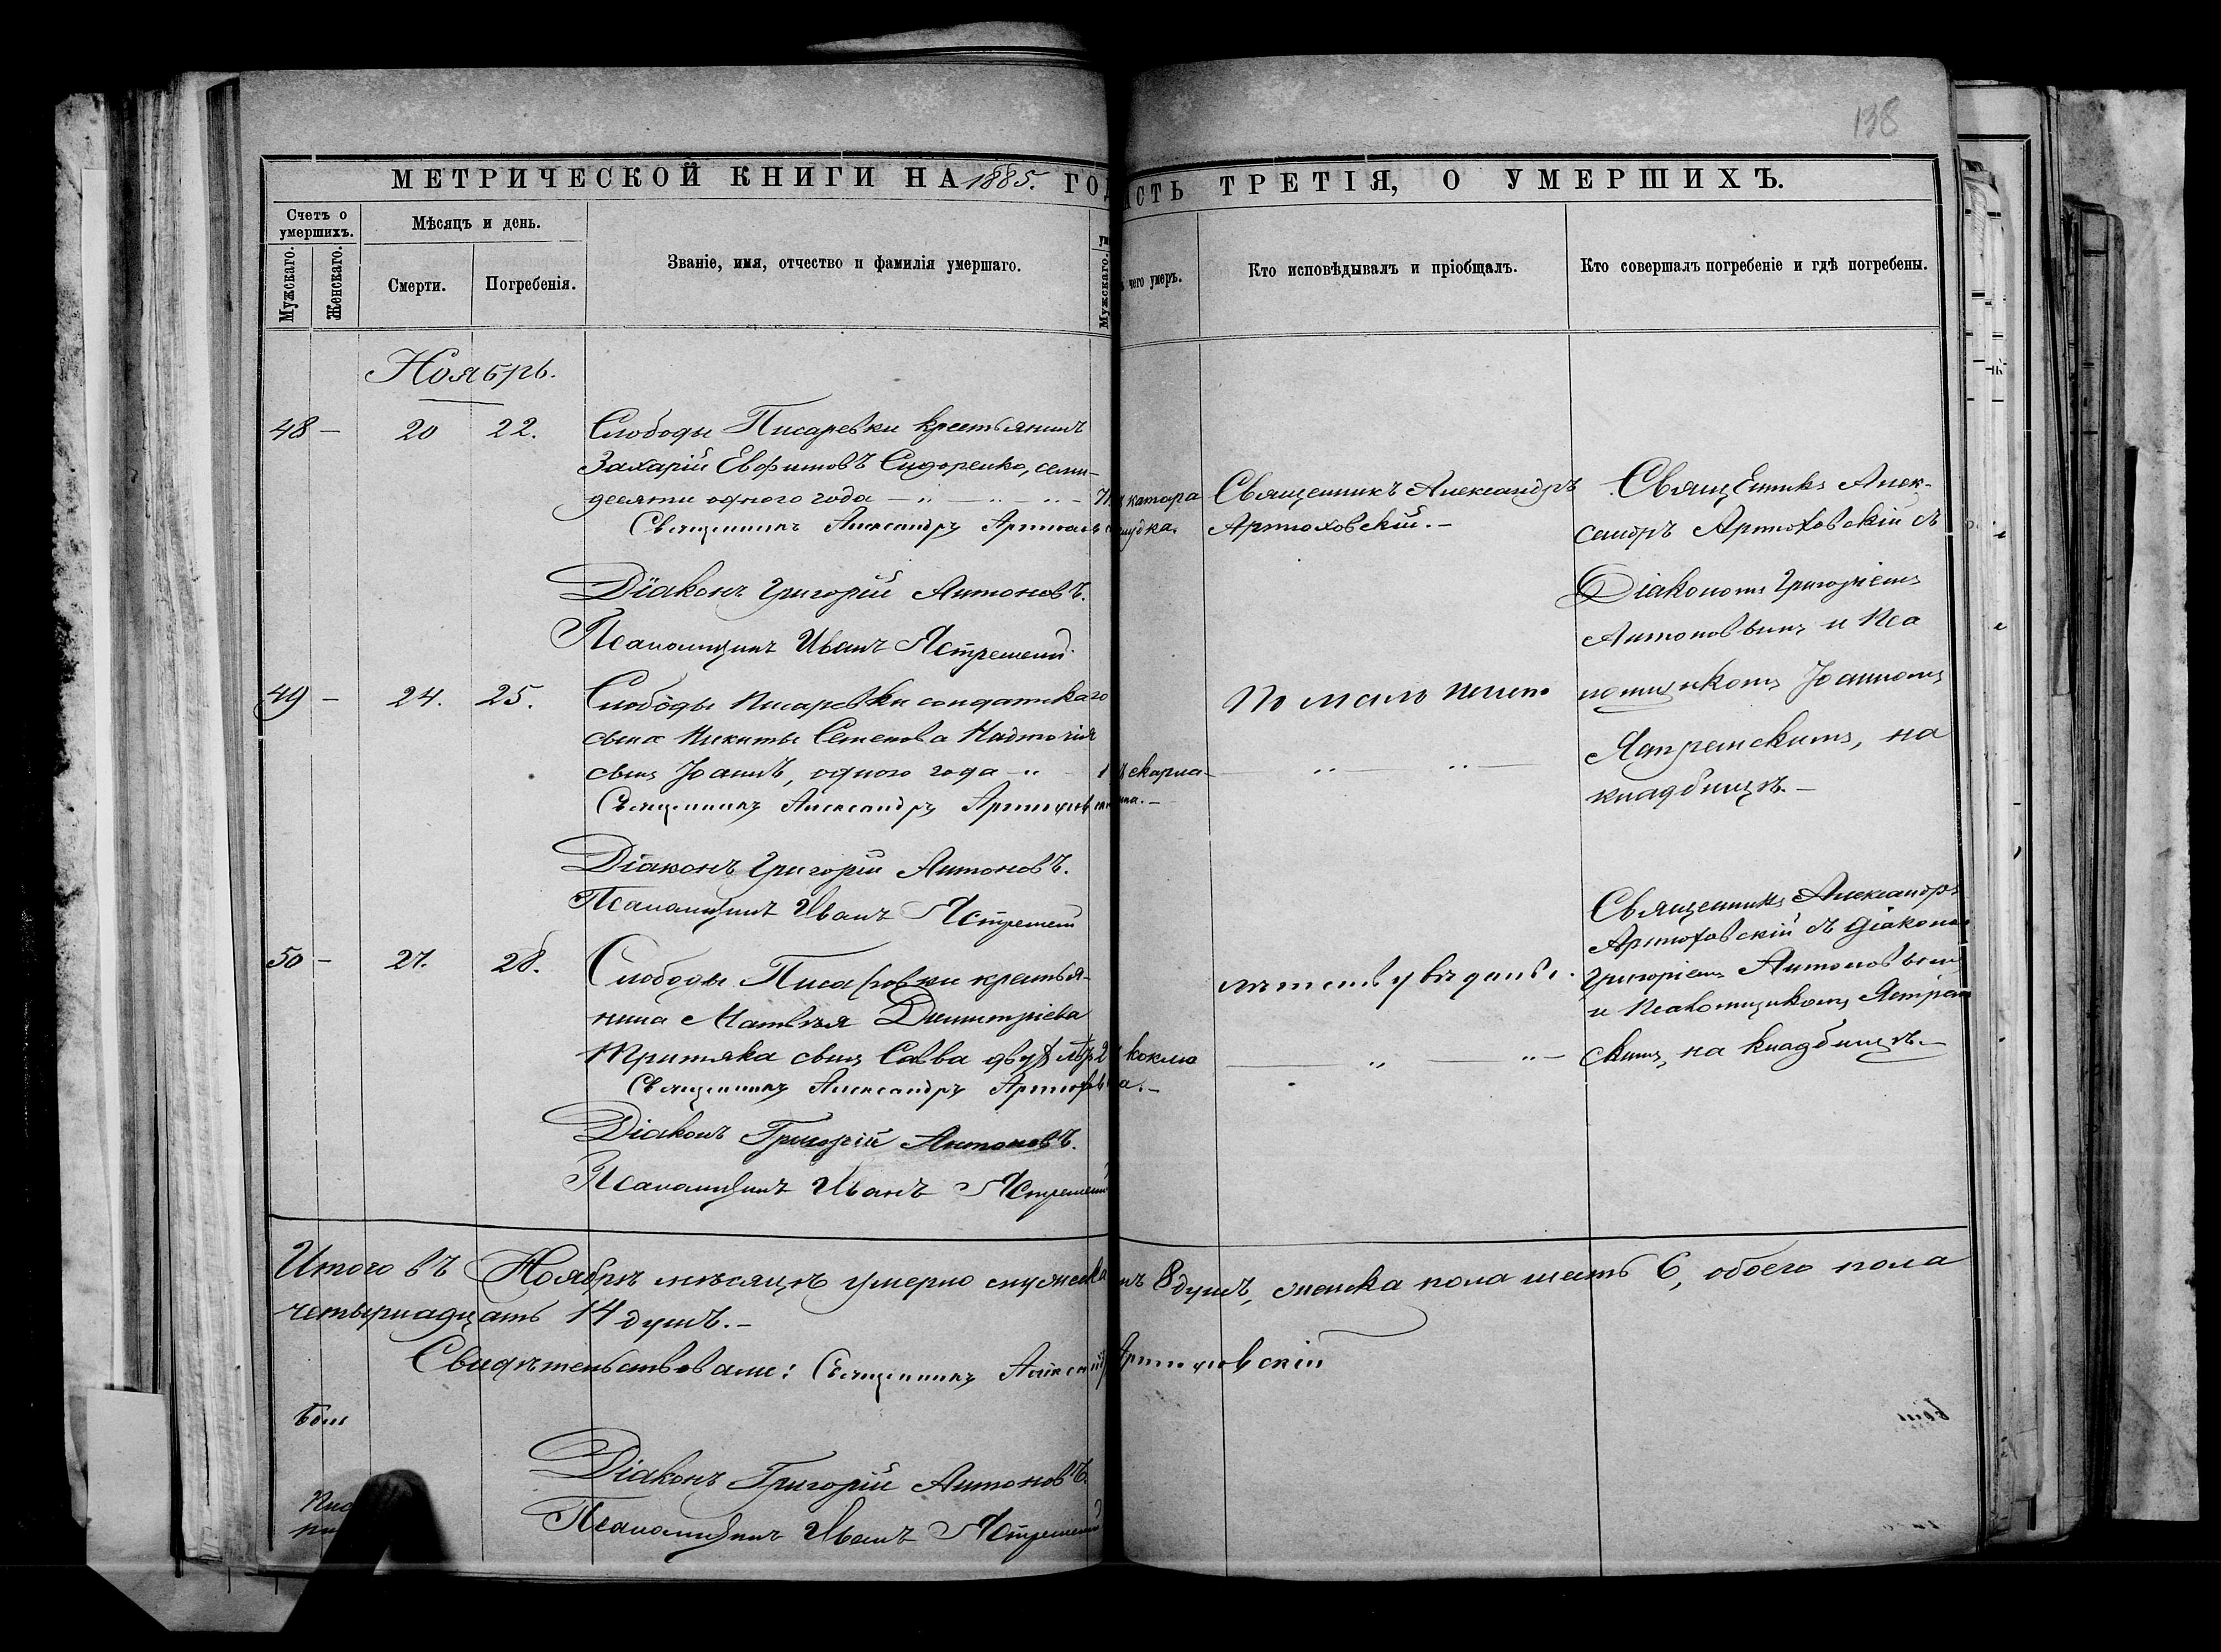 138
МЕТРИЧЕСКОЙ КНИГИ НА 1885. ГОД
АСТЬ ТРЕТІЯ, О УМЕРШИХЪ.
Счетъ о умершихъ.
Мужскаго.
Женскаго.
Мѣсяцъ и день.
Смерти.
Погребенія.
Званіе, имя, отчество и фамилія умершаго.
Мужскаго.
чего умеръ.
Кто исповѣдывалъ и пріобщалъ.
Кто совершалъ погребеніе и гдѣ погребены.
Ноябрь.
48 – 20 22. Слободы Писаревки крестьянинъ
Захарій Евфимовъ Сидоренко, семи-
десяти одного года 71 катара
Священникъ Александръ
Діаконъ Григорій Антоновъ.
Псаломщикъ Иванъ
Священникъ Александръ
Артюховскій. –
Священникъ Алек-
сандръ Артюховскій съ
Діакономъ Григоріемъ
Антоновымъ и Пса
ломщикомъ Іоанномъ
Ястремскимъ, на
кладбищѣ. –
49 – 24. 25. Слободы Писаревки солдатскаго
сына Никиты Семенова Надточія
сынъ Іоаннъ, одного года 1 скарла-
Священникъ Александръ тина. –
Діаконъ Григорій Антоновъ.
Псаломщикъ Иванъ
По мало
50 – 27. 28. Слободы Писаревки крестья-
нина Матвѣя Димитріева
Третяка сынъ Савва двухъ лѣтъ 2 коклю
Священникъ Александръ
Діаконъ Григорій Антоновъ.
Псаломщикъ Иванъ
Священникъ Александръ
Артюховскій съ Діакономъ
Григоріемъ Антоновымъ
и Псаломщикомъ Ястрем
скимъ, на кладбищѣ. –
Итого въ Ноябрѣ мѣсяцѣ умерло мужеска 8 душъ, женска пола шесть 6, обоего пола
четырнадцать 14 душъ. –
Свидѣтельствовали: Священникъ Александръ Артюховскій
Діаконъ Григорій Антоновъ.
Псаломщикъ Иванъ